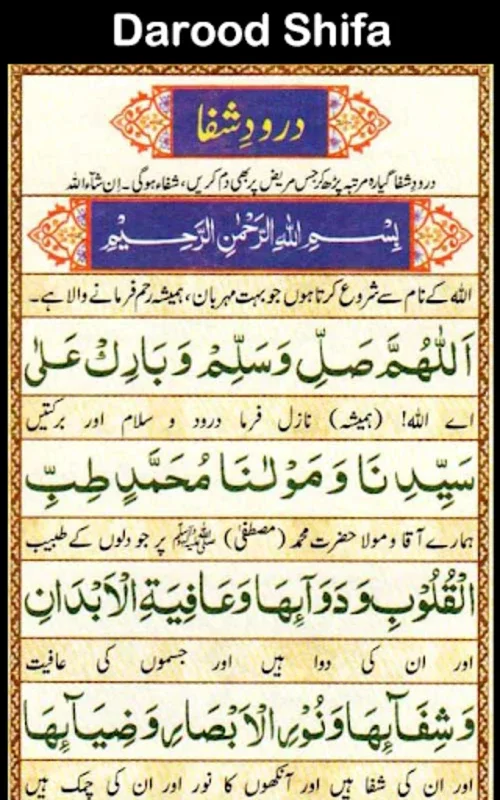 Darood Shifa
درودِ شفا
درودِ شفا گیارہ مرتبہ پڑھ کر جس مریض پر بھی دم کریں، شفاء ہوگی۔ اِن شآء اللہ
بِسْــمِ اللهِ الرَّحْمٰنِ الرَّحِـــيْمِ
اللہ کے نام سے شروع کرتا ہوں جو بہت مہربان، ہمیشہ رحم فرمانے والا ہے۔
اَللّٰهُمَّ صَلِّ وَسَلِّمْ وَبَارِكْ عَلٰى
اے اللہ! (ہمیشہ) نازل فرما درود و سلام اور برکتیں
سَيِّدِنَا وَمَوْلٰنَا مُحَمَّدٍ طِبِّ
ہمارے آقا و مولا حضرت محمد (مصطفیٰ) ﷺ پر جو دلوں کے طبیب
الْقُلُوْبِ وَدَوَآئِهَا وَعَافِيَةِ الْاَبْدَانِ
اور ان کی دوا ہیں اور جسموں کی عافیت
وَشِفَآئِهَا وَنُوْرِ الْاَبْصَارِ وَضِيَآئِهَا
اور ان کی شفا ہیں اور آنکھوں کا نور اور ان کی چمک ہیں